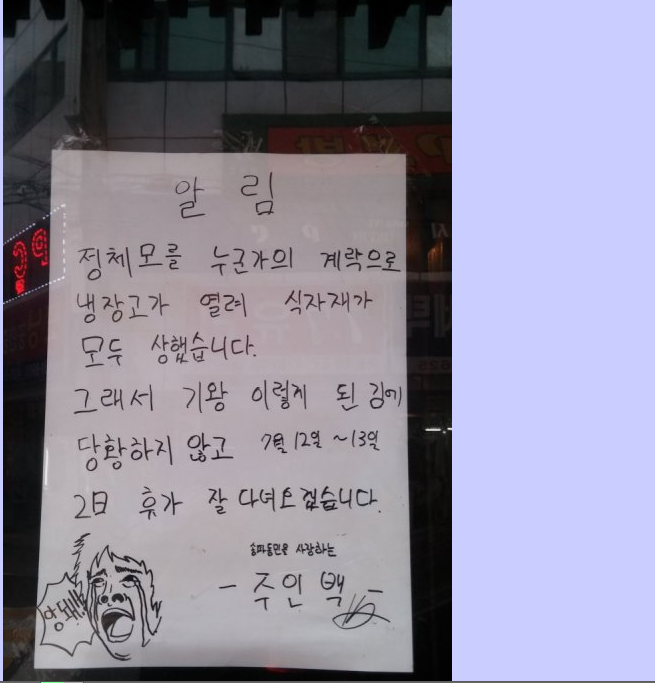 알 림
정체모를 누군가의 계략으로
냉장고가 열려 식자재가
모두 상했습니다.
그래서 기왕 이렇게 된 김에
당황하지 않고 7월 12일 ~13일
2日 휴가 잘 다녀오겠습니다.
송파동민을 사랑하는
- 주인 백 -
앙돼!!